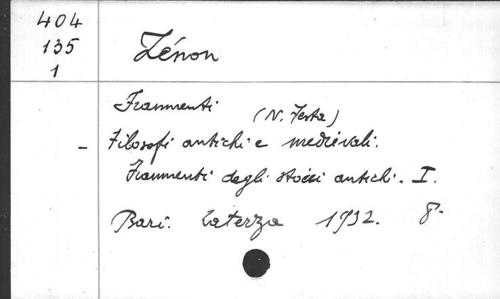 404
135
1
Zénon
Frammenti (N. Festa)
- Filosofi antichi e medievali.
Frammenti degli stoici antichi. I.
Bari. Laterza 1932. 8-